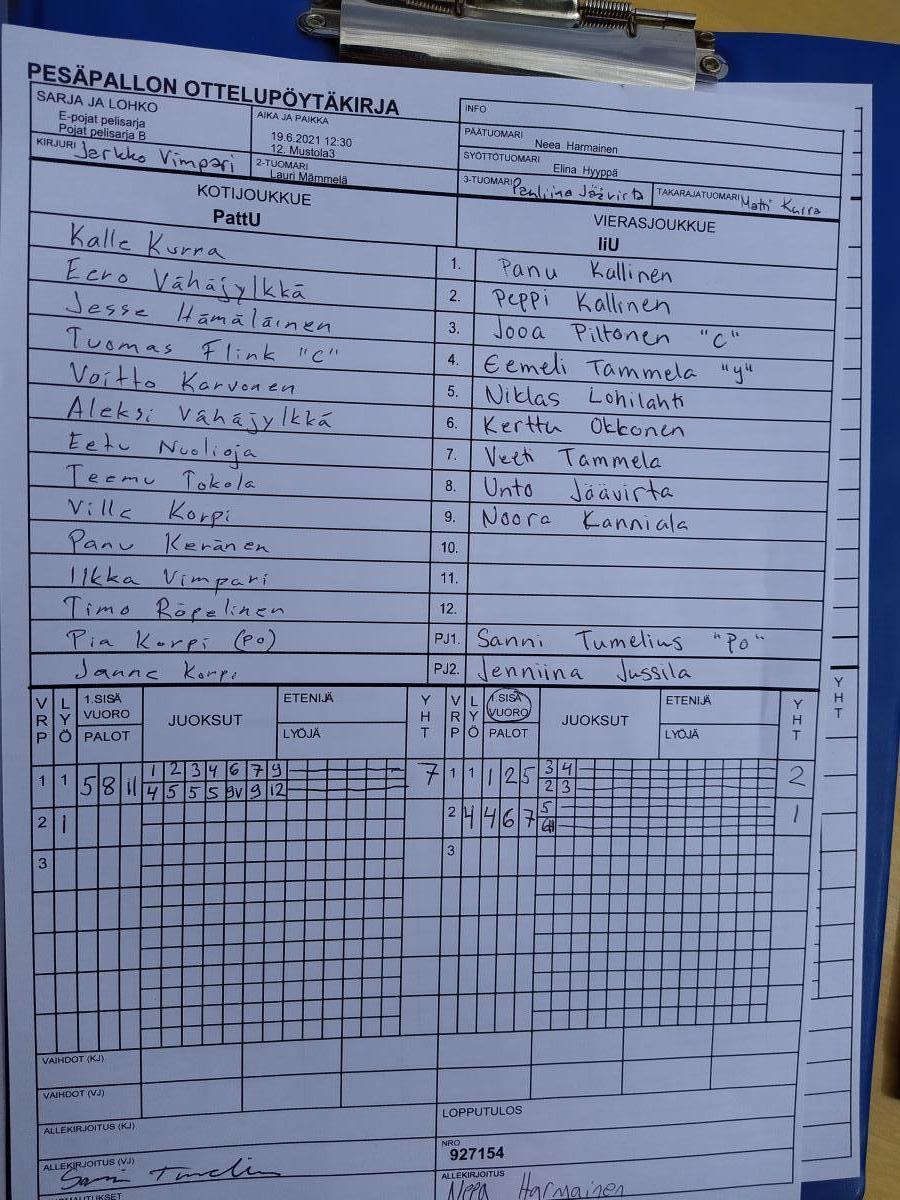 PESÄPALLON OTTELUPÖYTÄKIRJA
SARJA JA LOHKO
E-pojat pelisarja
Pojat pelisarja B
AIKA JA PAIKKA
19.6.2021 12:30
12. Mustola3
INFO
PÄÄTUOMARI
Neea Harmainen
KIRJURI Jarkko Vimpari
2-TUOMARI
Lauri Mämmelä
SYÖTTÖTUOMARI
Elina Hyyppä
3-TUOMARI Pauliina Jäävirta
TAKARAJATUOMARI Matti Kurra
KOTIJOUKKUE
PattU
VIERASJOUKKUE
IiU
Kalle Kurra 1. Panu Kallinen
Eero Vähäjylkkä 2. Peppi Kallinen
Jesse Hämäläinen 3. Jooa Piltonen "C"
Tuomas Flink "C" 4. Eemeli Tammela "y"
Voitto Karvonen 5. Niklas Lohilahti
Aleksi Vähäjylkkä 6. Kerttu Okkonen
Eetu Nuolioja 7. Veeti Tammela
Teemu Tokola 8. Unto Jäävirta
Ville Korpi 9. Noora Kanniala
Panu Keränen 10.
Ilkka Vimpari 11.
Timo Röpelinen 12.
Pia Korpi (PO) PJ1. Sanni Tumelius "PO"
Janne Korpi PJ2. Jenniina Jussila
VRP LYÖ 1.SISÄ VUORO PALOT JUOKSUT ETENIJÄ LYÖJÄ YHT VRP LYÖ 1.SISÄ VUORO PALOT JUOKSUT ETENIJÄ LYÖJÄ YHT YHT
1 1 5 8 11 1 2 3 4 6 7 9 7 1 1 1 2 5 3 4 2
4 5 5 5 9V 9 12 2 3
2 1 2 4 4 6 7 5 1
3 3
VAIHDOT (KJ)
VAIHDOT (VJ)
ALLEKIRJOITUS (KJ)
LOPPUTULOS
NRO
927154
ALLEKIRJOITUS (VJ)
Sanni Tumelius
ALLEKIRJOITUS
Neea Harmainen